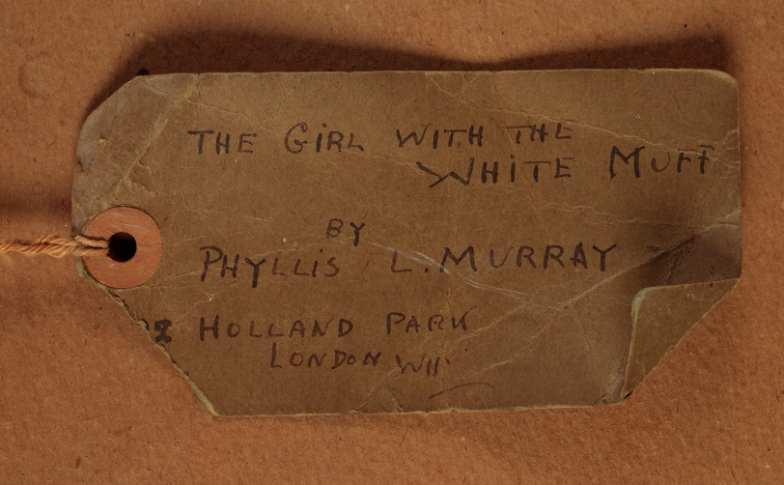 THE GiRL WITH THE
WHiTE MUFF
BY
PHYLLiS L. MURRAY
HOLLAND PARK
LONDON W11